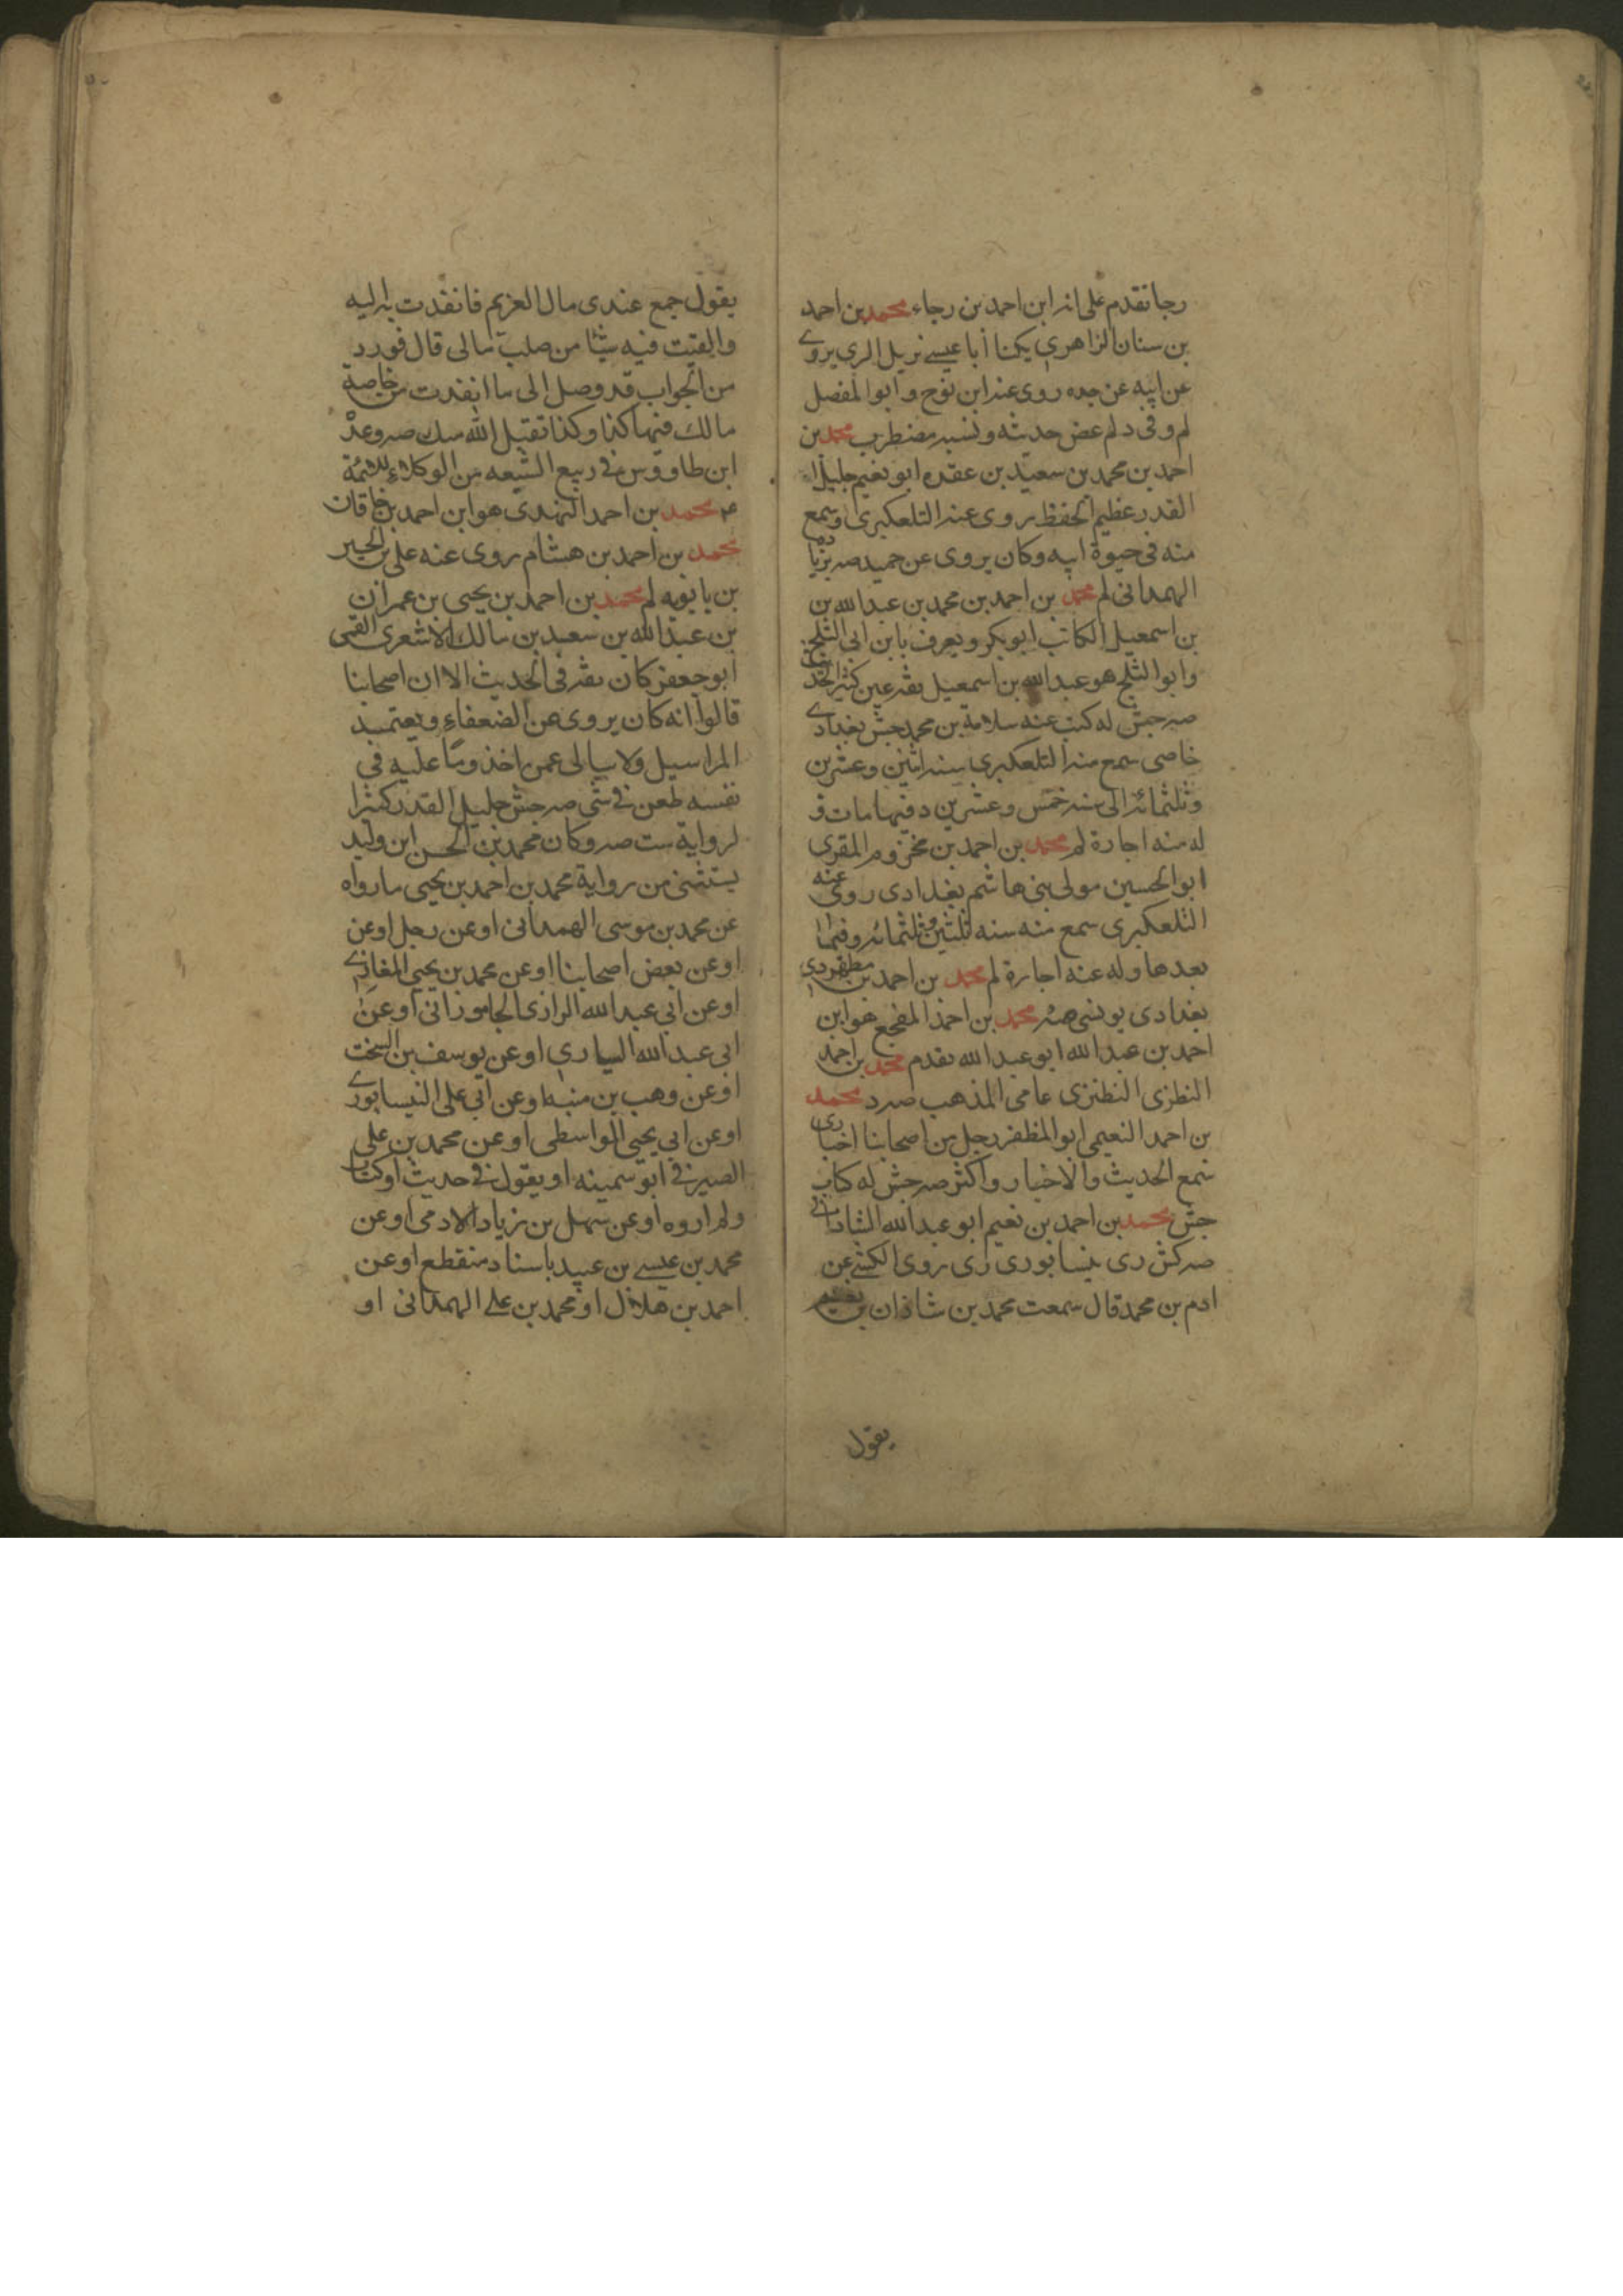 رجا تقدم على انه ابن احمد بن رجاء محمد بن احمد
بن سنان الزاهري يكنا أبا عيسى نزيل الري يروي
عن ابيه عن جده روى عنه ابن نوح وابو المفضل
لم وفى د لم غض حديثه ونسبه مضطرب محمد بن
احمد بن محمد بن سعيد بن عقده ابو نعيم جليل
القدر عظيم الحفظ روى عنه التلعكبرى وسمع
منه فى حيوة ابيه وكان يروى عن حميد صه بن زياد
الهمدانى لم محمد بن احمد بن محمد بن عبد الله بن
بن اسمعيل الكاتب ابو بكر ويعرف بابن ابى الثلج
وابو الثلج هو عبد الله بن اسمعيل ثقه عين كثير الحديث
صه جش له كتب عنه سلامة بن محمد جش بغدادي
خاصى سمع منه التلعكبرى سنه اثنين وعشرين
وثلثمائه الى سنه خمس وعشرين وفيها مات و
له منه اجازة لم محمد بن احمد بن مخزوم المقرى
ابو الحسين مولى بنى هاشم بغدادى روى عنه
التلعكبرى سمع منه سنه ثلثين وثلثمائه وفيما
بعدها وله عنه اجازة لم محمد بن احمد بن مطهر دى
بغدادى يونسى صه محمد بن احمد المفجع هو ابن
احمد بن عبد الله ابو عبد الله تقدم محمد بن احمد
النطزى النطنزى عامى المذهب صه د محمد
بن احمد النعيمى ابو المظفر رجل من اصحابنا اخبارى
سمع الحديث والاخبار واكثر صه جش له كتاب
جش محمد بن احمد بن نعيم ابو عبد الله الشاذانى
صه كش رى نيسابورى رى روى الكشى عن
ادم بن محمد قال سمعت محمد بن شاذان بن نعيم
يقول
يقول جمع عندى مال العزيم فانفذت به اليه
والقيت فيه شيئا من صلب مالى قال فورد
من الجواب قد وصل الى ما انفذت من خاصة
مالك فيها كذا وكذا تقبل الله منك صه وعد
ابن طاووس فى ربيع الشيعه من الوكلاء للائمة
عم محمد بن احمد النهدى هو ابن احمد بن خاقان
محمد بن احمد بن هشام روى عنه على بن الحسين
بن بابويه لم محمد بن احمد بن يحيى بن عمران
بن عبد الله بن سعيد بن مالك الاشعرى القمى
ابو جعفر كان ثقه فى الحديث الا ان اصحابنا
قالوا انه كان يروى عن الضعفاء ويعتمد
المراسيل ولا يبالى عمن اخذ وما عليه فى
نفسه طعن فى شى صه جش جليل القدر كثير ا
لرواية ست صه وكان محمد بن الحسن ابن وليد
يستثنى من رواية محمد بن احمد بن يحيى ما رواه
عن محمد بن موسى الهمدانى او عن رجل او عن
او عن بعض اصحابنا او عن محمد بن يحيى المغاذي
او عن ابى عبد الله الرازى الجامورانى او عن
ابى عبد الله السيارى او عن يوسف بن السخت
او عن وهب بن منبه او عن ابى على النيسابوري
او عن ابى يحيى الواسطى او عن محمد بن على
الصيرفى ابو سمينه او يقول فى حديث او كتاب
ولم اروه او عن سهل بن زياد الادمى او عن
محمد بن عيسى بن عبيد باسناد منقطع او عن
احمد بن هلال او محمد بن على الهمدانى او